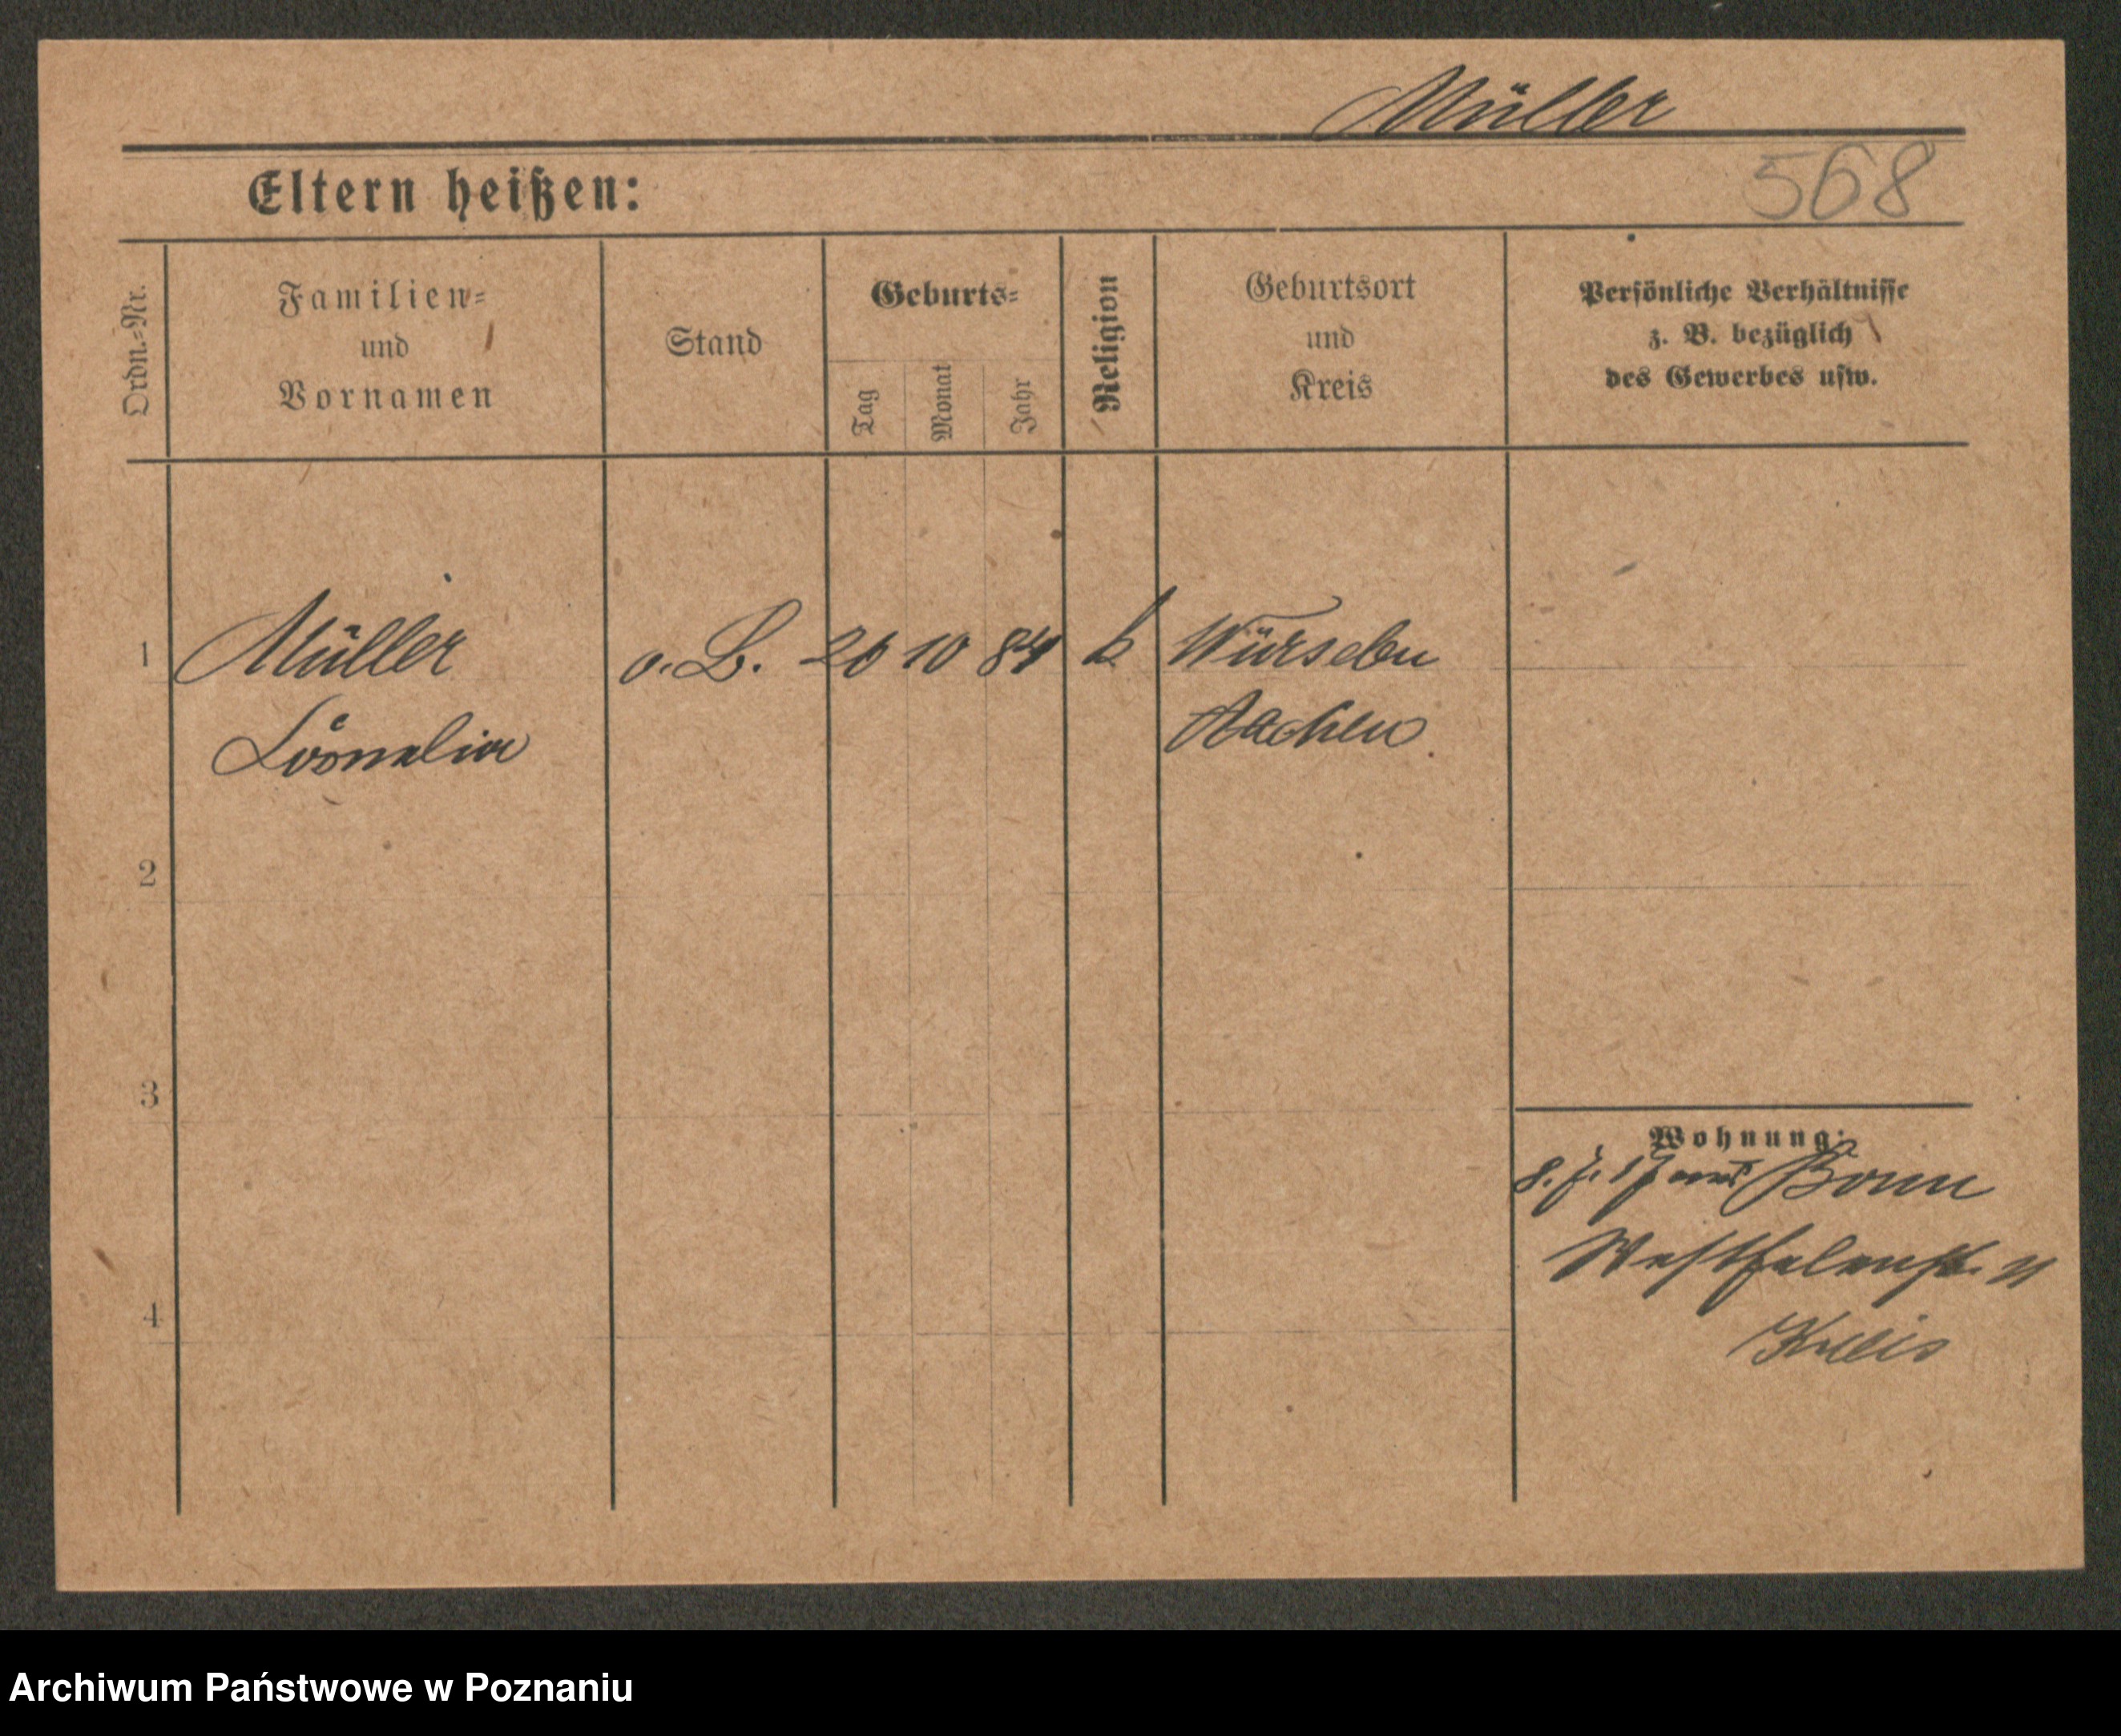 Müller
568
Eltern heißen:
Ordn.-Nr.
Familien-
und
Vornamen
Stand
Geburts-
Tag
Monat
Jahr
Religion
Geburtsort
und
Kreis
Persönliche Verhältnisse
z. B. bezüglich
des Gewerbes usw.
1 Müller o. B. 26 10 84 k Würselen
Aachen
2
3
4
Wohnung:
8. 7. 17 aus Bonn
Westfalenstr. 11
Kreis
Archiwum Państwowe w Poznaniu